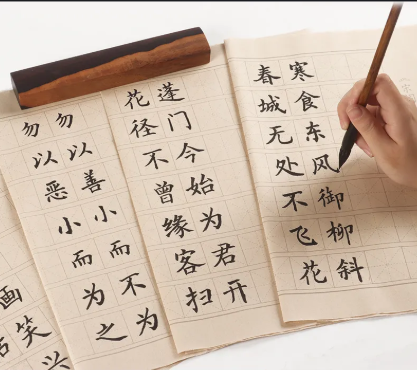 画笑兴
勿以恶小而为之
勿以善小而不为
花径不曾缘客扫
蓬门今始为君开
春城无处不飞花
寒食东风御柳斜